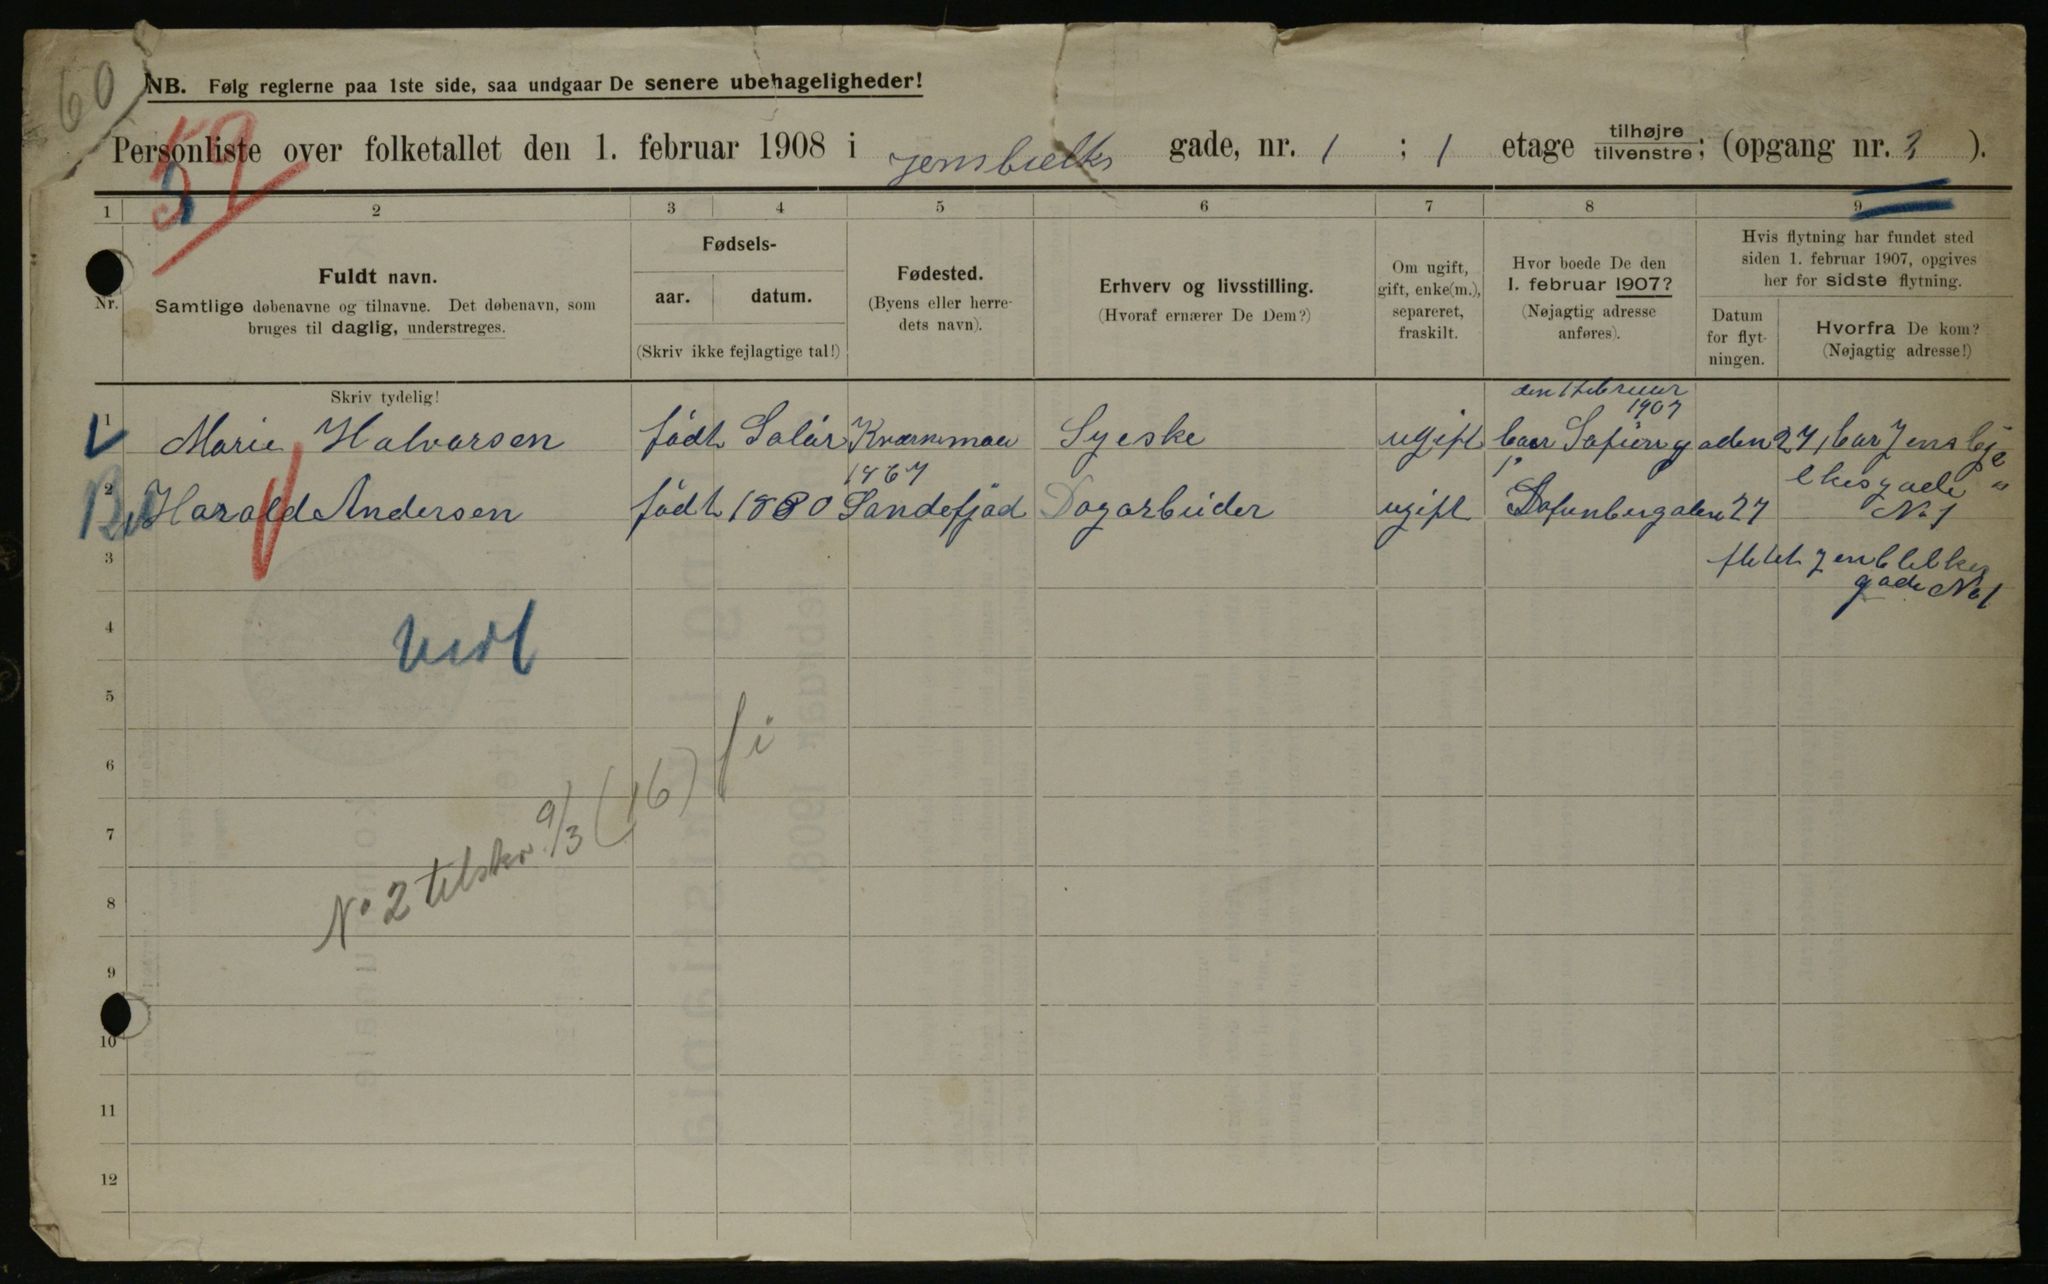 60
NB. Følg reglerne paa 1ste side, saa undgaar De senere ubehageligheder!
59
Personliste over folketallet den 1. februar 1908 i Jensbielks gade, nr. 1 ; 1 etage tilhøjre tilvenstre; (opgang nr. 3 ).
1 2 3 4 5 6 7 8 9
Nr.
Fuldt navn.
Samtlige døbenavne og tilnavne. Det døbenavn, som
bruges til daglig, understreges.
Fødsels-
aar. datum.
(Skriv ikke fejlagtige tal!)
Fødested.
(Byens eller herre-
dets navn).
Erhverv og livsstilling.
(Hvoraf ernærer De Dem?)
Om ugift,
gift, enke(m.),
separeret,
fraskilt.
Hvor boede De den
1. februar 1907?
(Nøjagtig adresse
anføres).
Hvis flytning har fundet sted
siden 1. februar 1907, opgives
her for sidste flytning.
Datum
for flyt-
ningen.
Hvorfra De kom?
(Nøjagtig adresse!)
Skriv tydelig!
den 1 februar
1907
1 Marie Halvorsen født Solør Kværnmoen Syeske ugift boer Sofiengaden 27, bor Jensbje
1867
lkesgade
2 Harald Andersen født 1880 Sandefjod Dagarbeider ugift 27
No 1
3
gade No 1
4
5
6
7
8
9
10
11
12
No 2 tilskr. 9/3 (16) fi